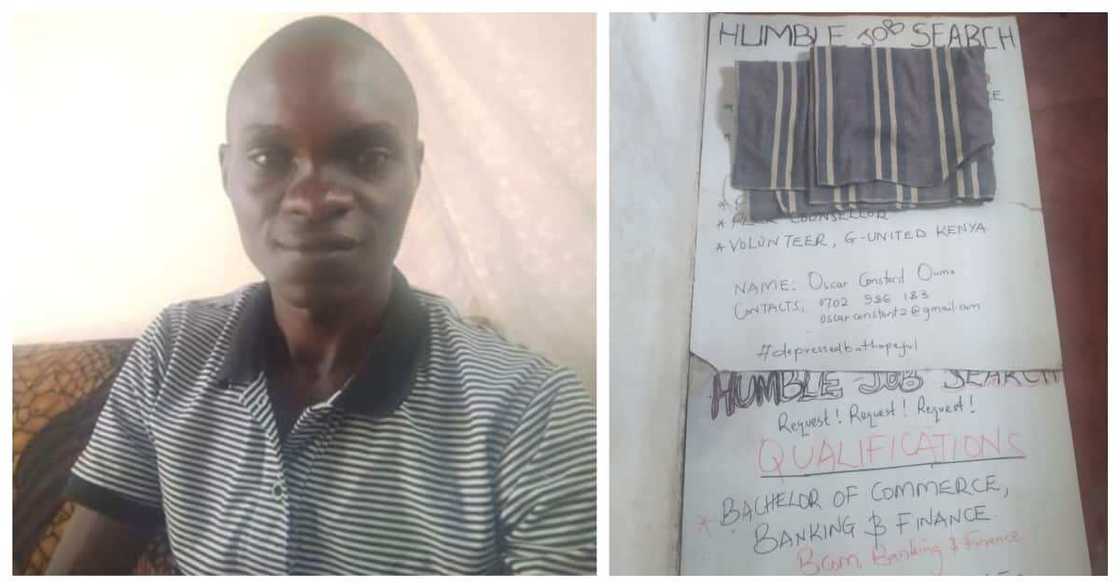 HUMBLE JOB SEARCH
COUNSELLOR
* VOLUNTEER, G-UNITED KENYA
NAME: Oscar Constant Ouma
CONTACTS, 0702 936 183
oscarconstant2@gmail.com
#depressedbuthopeful
HUMBLE JOB SEARCH
Request! Request! Request!
QUALIFICATIONS
* BACHELOR OF COMMERCE,
BANKING $ FINANCE
Bcom Banking $ Finance